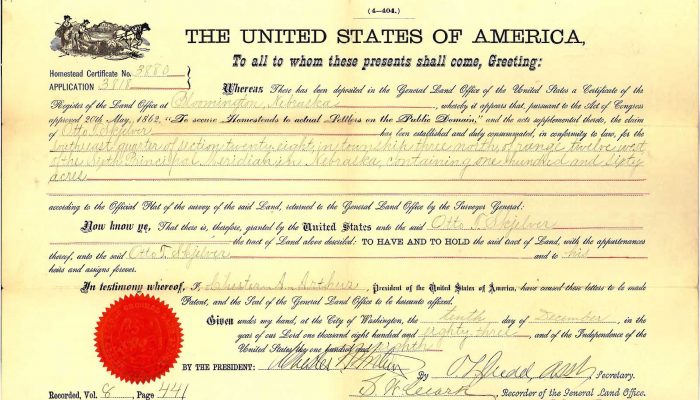 (4-404.)
THE UNITED STATES OF AMERICA,
To all to whom these presents shall come, Greeting:
Homestead Certificate No. 3880
APPLICATION 3818
Whereas There has been deposited in the General Land Office of the United States a Certificate of the
Register of the Land Office at Bloomington, Nebraska, whereby it appears that, pursuant to the Act of Congress
approved 20th May, 1862, "To secure Homesteads to actual Settlers on the Public Domain," and the acts supplemental thereto, the claim
of Otto T. Skjelver has been established and duly consummated, in conformity to law, for the
southeast quarter of section twenty eight, in township three north, of range twelve west
of the Sixth Principal Meridian in Nebraska, containing one hundred and sixty
acres
according to the Official Plat of the survey of the said Land, returned to the General Land Office by the Surveyor General:
Now know ye, That there is, therefore, granted by the United States unto the said Otto T. Skjelver
the tract of Land above described: TO HAVE AND TO HOLD the said tract of Land, with the appurtenances
thereof, unto the said Otto T. Skjelver and to his
heirs and assigns forever.
In testimony whereof, I, Chester A. Arthur, President of the United States of America, have caused these letters to be made
Patent, and the Seal of the General Land Office to be hereunto affixed.
Given under my hand, at the City of Washington, the tenth day of December, in the
year of our Lord one thousand eight hundred and eighty three, and of the Independence of the
United States the one hundred and eighth
BY THE PRESIDENT: Chester A. Arthur
By Secretary.
Recorded, Vol. 8, Page 441
S. W. Clark, Recorder of the General Land Office.